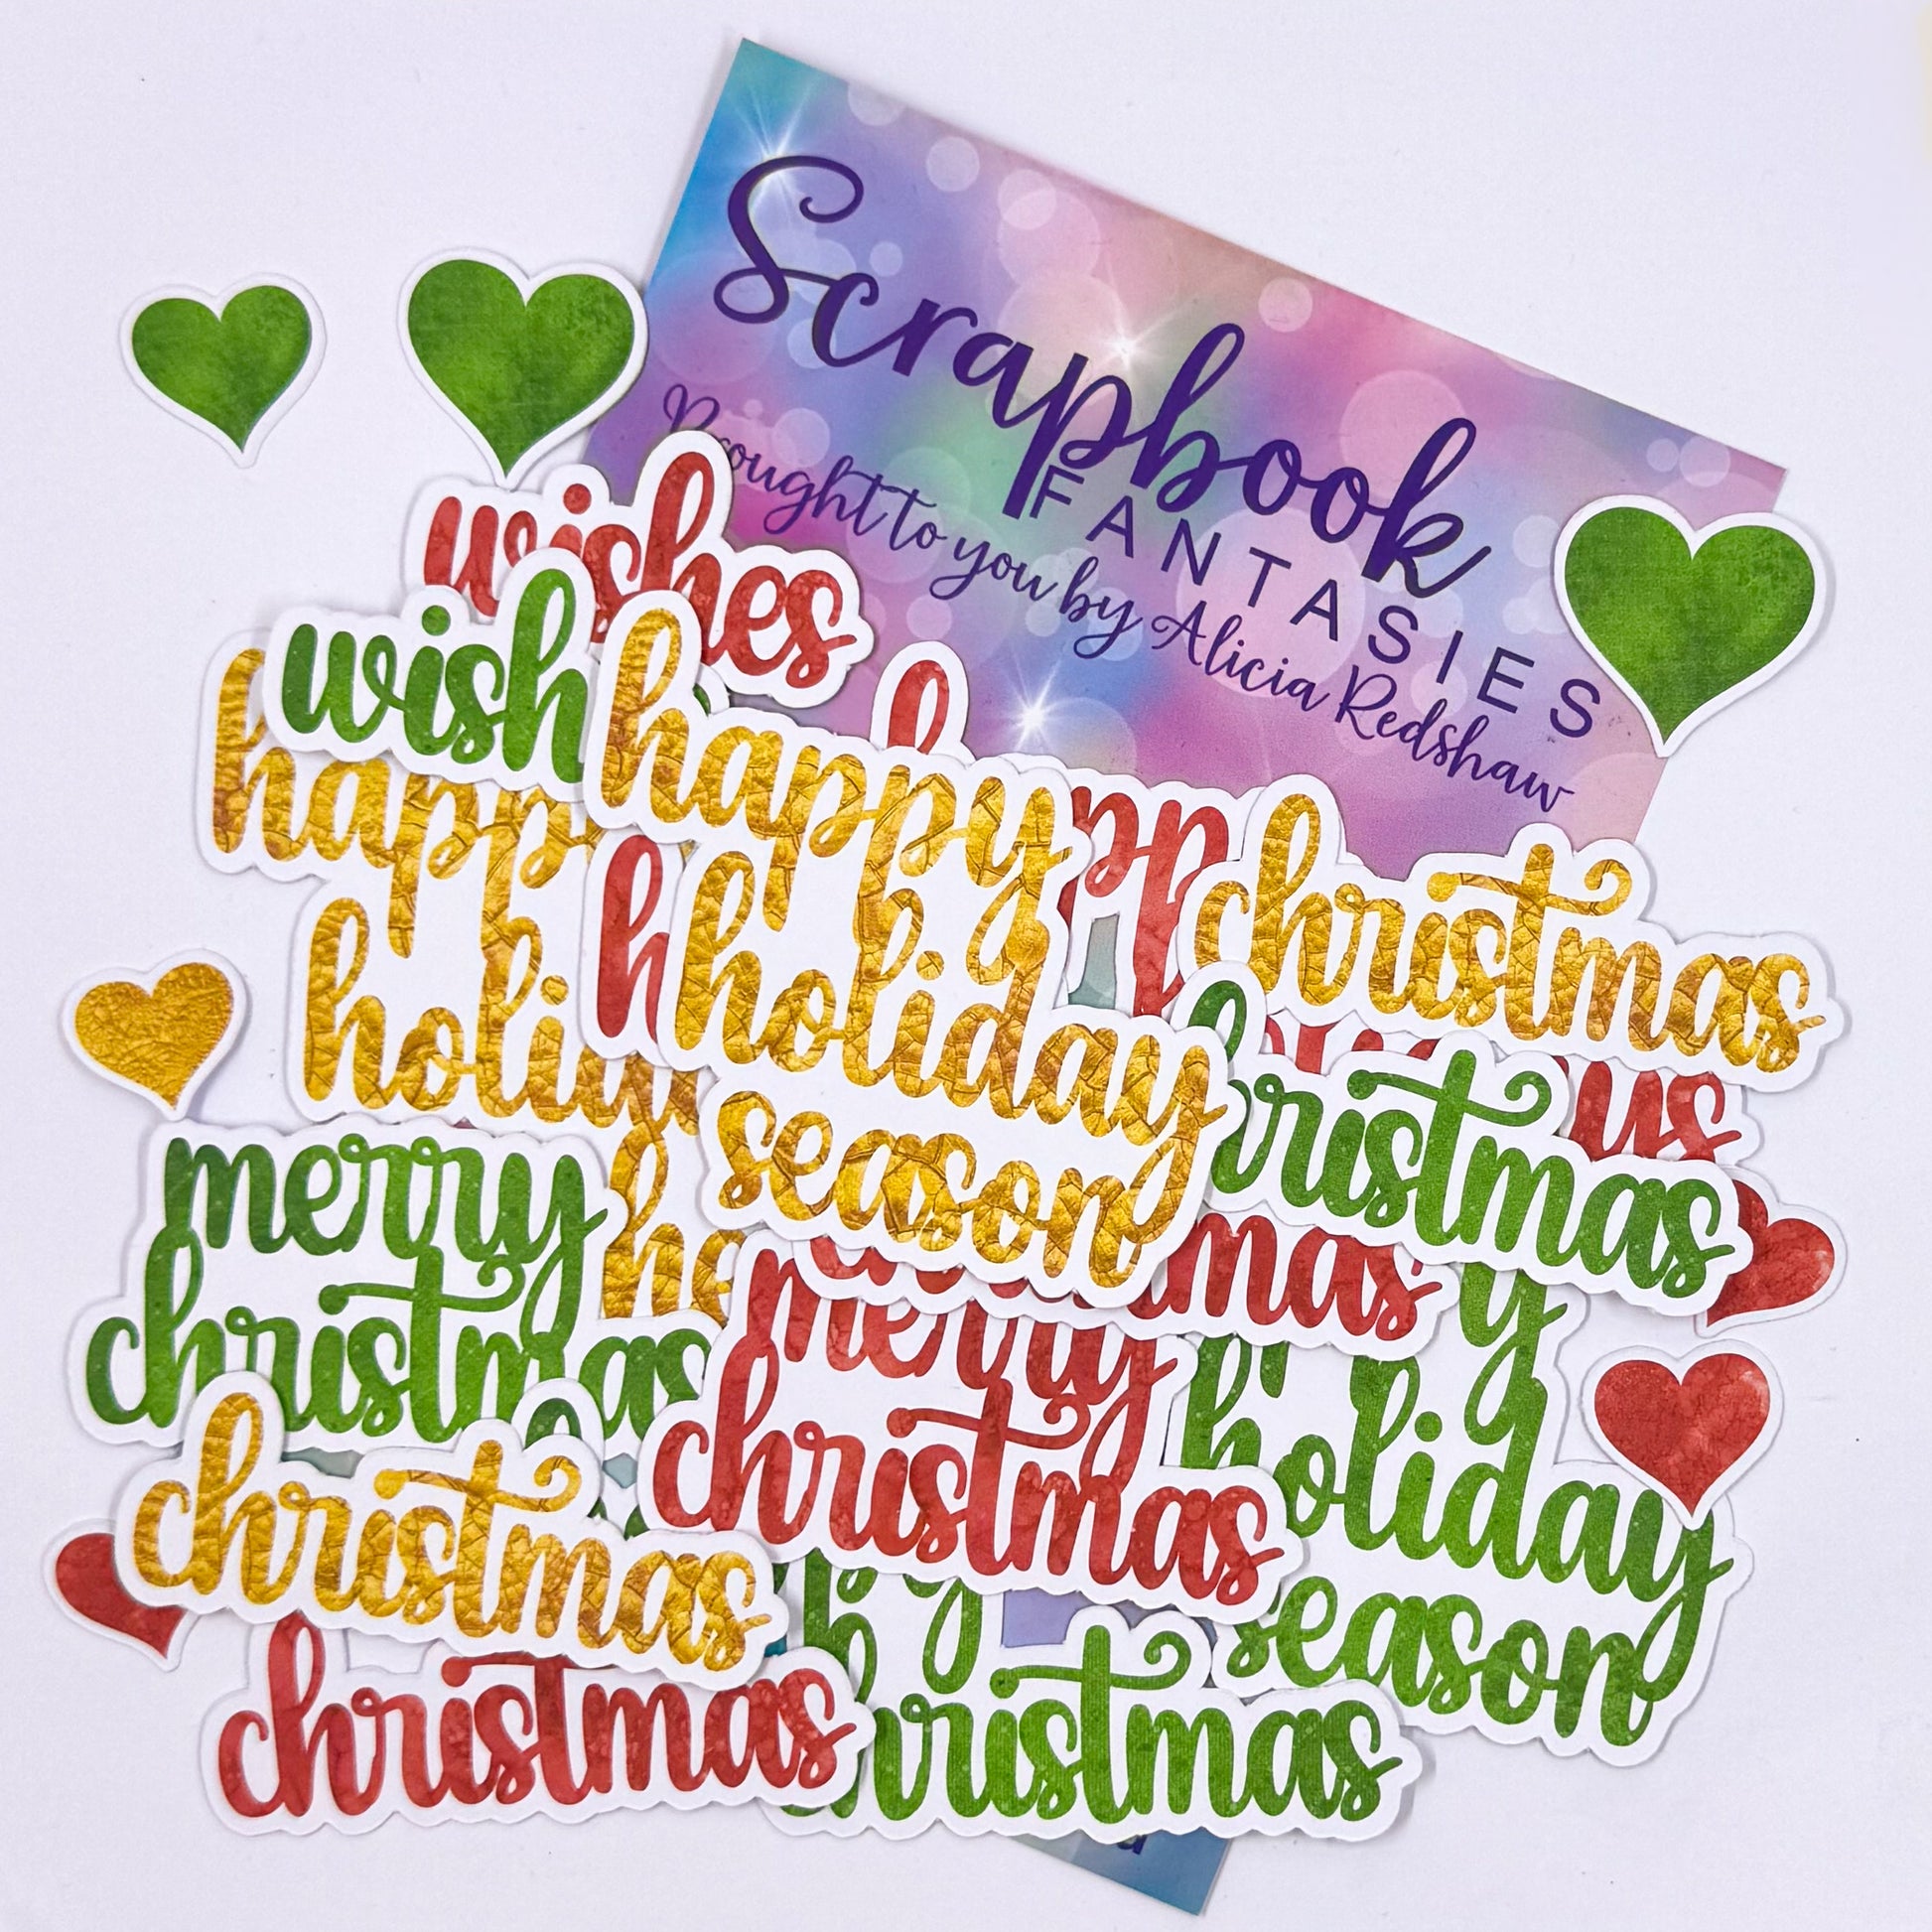 Scrapbook
FANTASIES
Brought to you by Alicia Redshaw
wishes
wish
happy
holiday
season
happ
christmas
christmas
us
merry
christmas
mas
merry
christmas
holiday
season
christmas
christmas
christmas